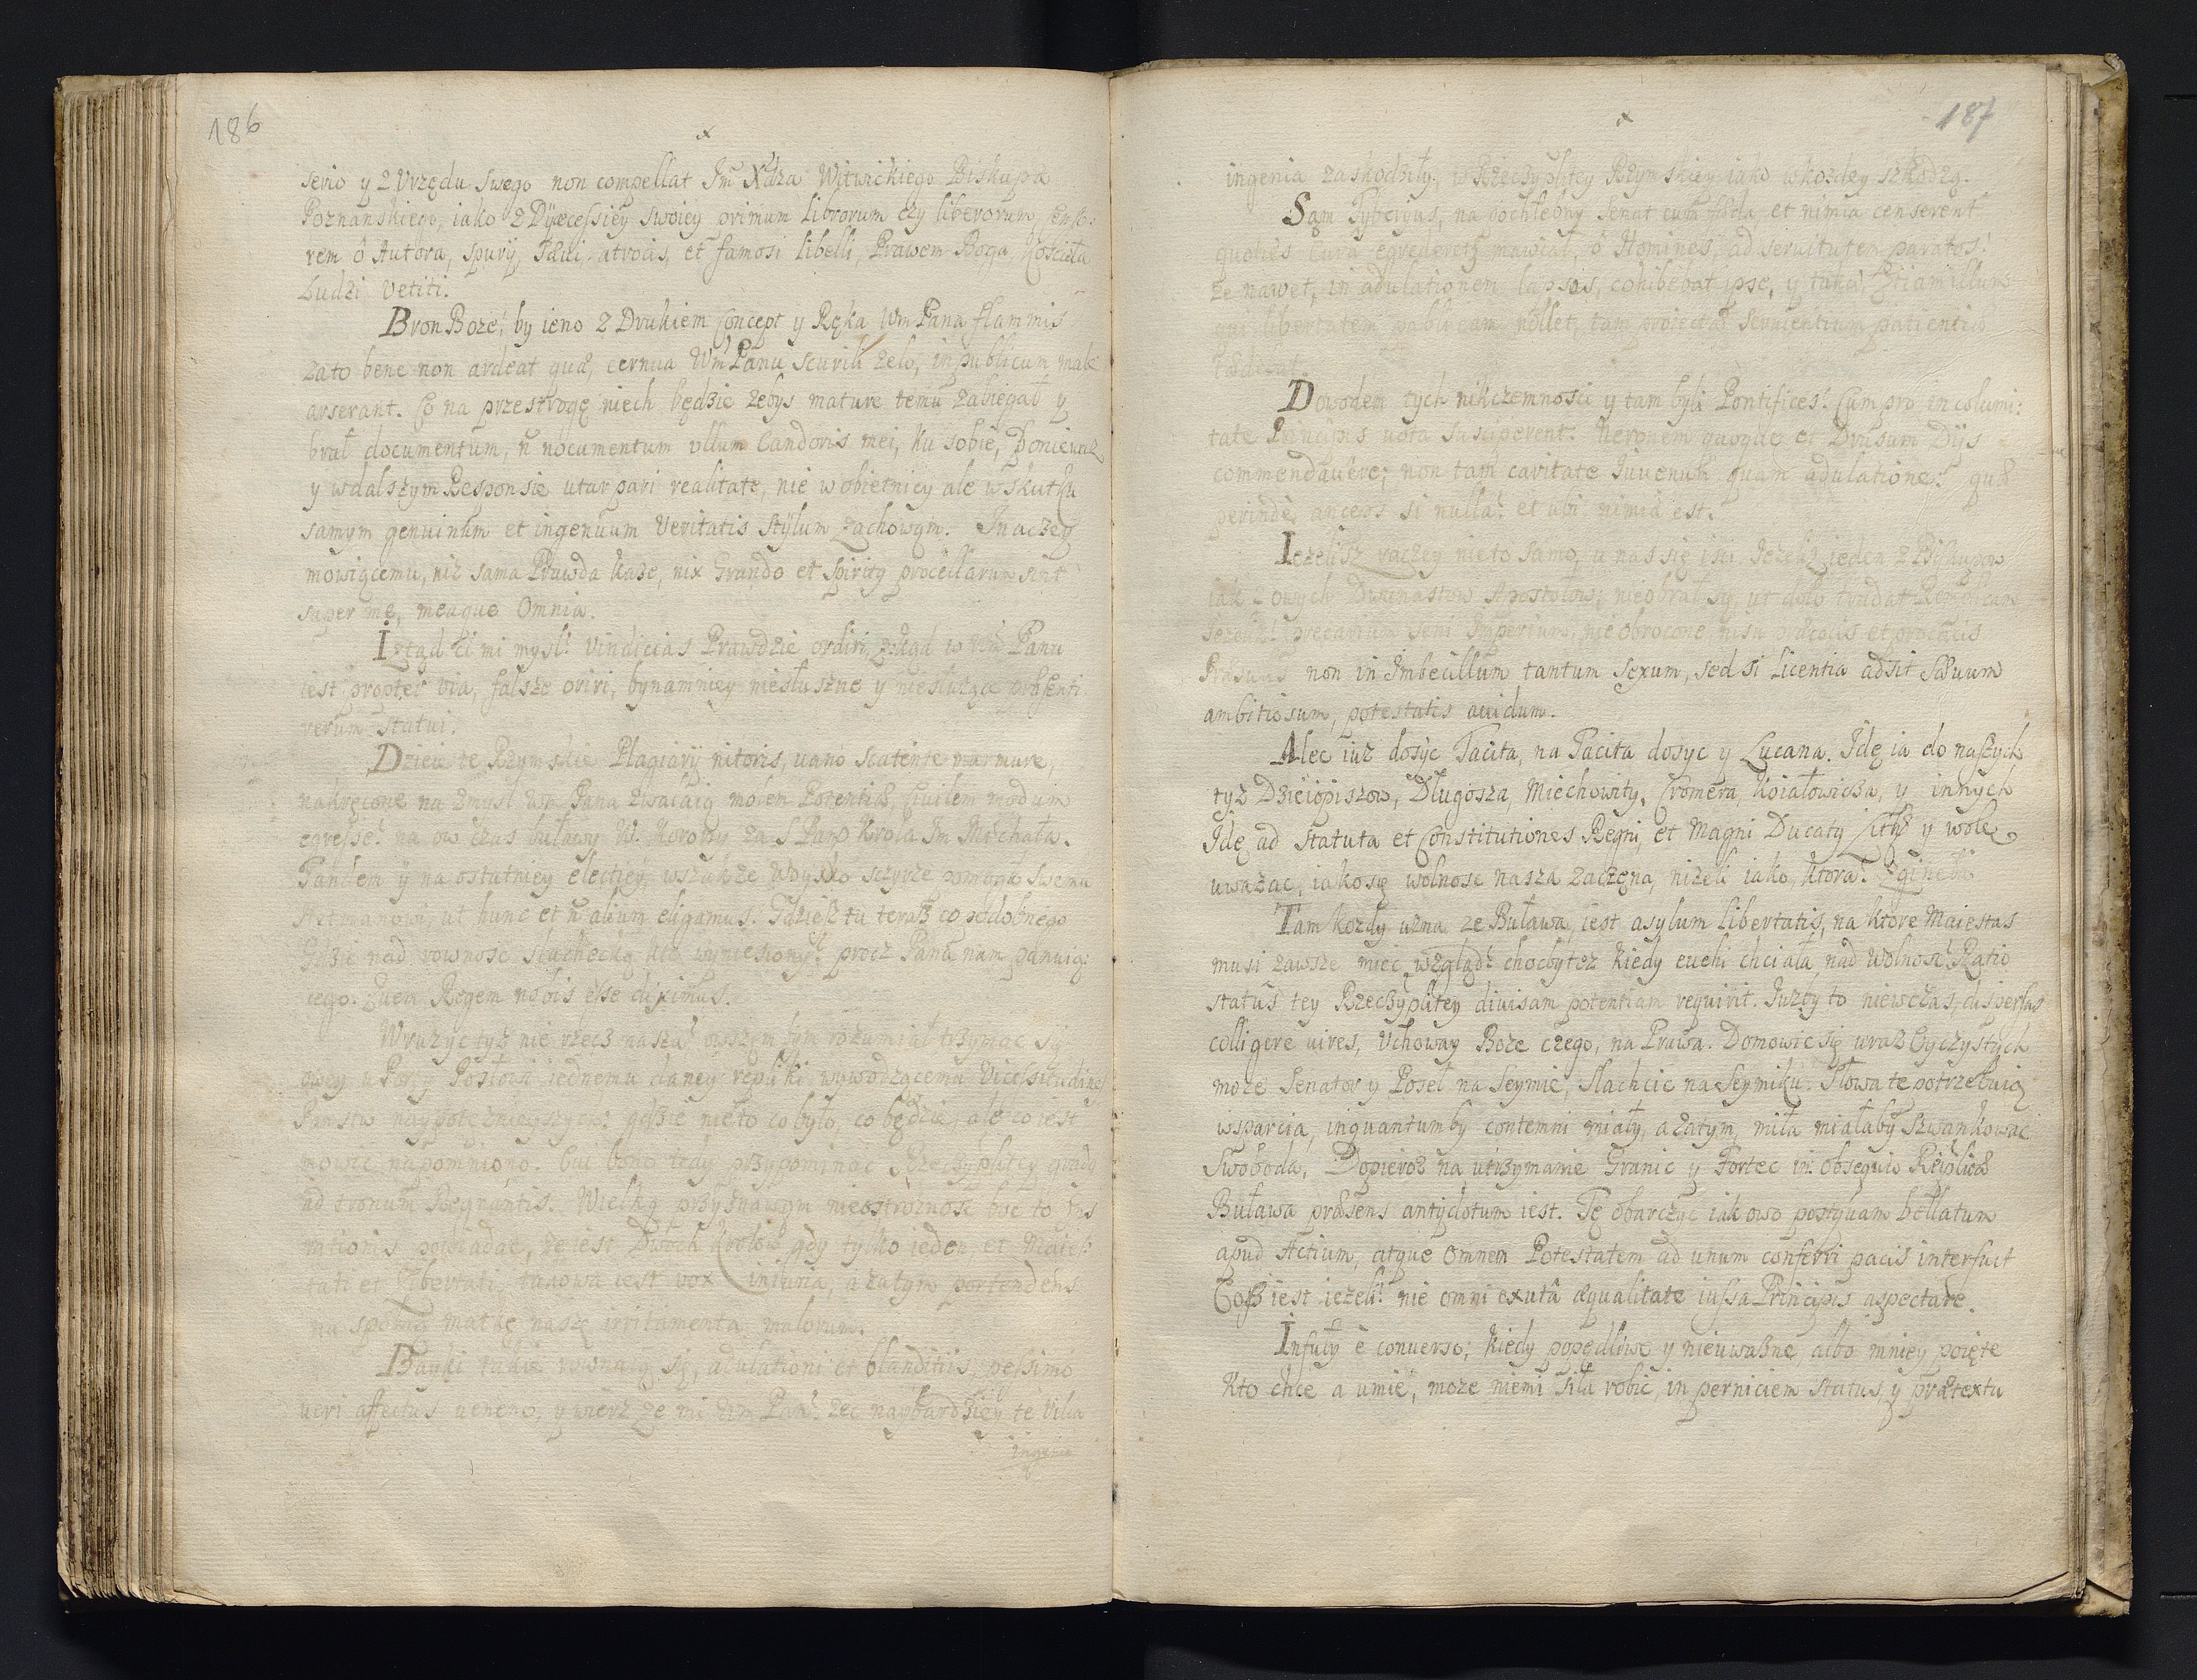 186
serio y z Vrzędu swego non compellat Jm Xdza Witwickiego Biskupa
Poznanskiego, iako z Dÿæcessiey swoiey ortmum librorum czy liberorum, censo:
rem ô Autora, spurij, atrocis, et famosi libelli, Prawem Boga, Kościoła
Ludzi vetiti.
Bron Boze! by ieno z Drukiem Concept y Ręka Wm Pana flammis
zato bene non ardeat quæ, cernua Wm Panu scurili zelo, in publicum male
arserant. Co na przestrogę niech będzie zebys mature temu zabiegał y
brał documentum, ñ nocumentum vllum Candoris mei, ku sobie, Poniewaz
y wdalszym Responsie utar pari realitate, nie w obietnicy ale w skutku
samym genuinum et ingenuum Veritatis stÿlum zachowam. Inaczey
mowiącemu, niz sama Prawda kaze, nix Grando et spiritq procellarum sint
super me, meaque Omnia.
Iztąd ci mi mysl! vindicias Prawdzie ordiri, zkąd w Wm Panu
iest propter via, falsze oriri, bynamniey niesłuszne y niesłuzące præsenti
rerum statui.
Dzieie te Rzymskie Plagiarÿ nitoris, vano scatente marmure,
nakręcone na zmysł Wm Pana zwalaią molem Potentiæ, Civilem modum
egresse! na ow czas buławy W. Korony za S Pam Krola Jm Michała.
Tandem ÿ na ostatniey electiey, wszakze Woysko sczyrze pomogło swemu
Hetmanowi, ut hunc et ñ alium eligamus. Gdzież tu teraz co podobnego
Gdzie nad rownosc slachecką kto wyniesiony? procz Pana nam panuią:
cego. Quem Regem nobis esse diximus.
Wrozyc tyz nie rzecz nasza! owszem bym rozumiał trzymac się
owey u Porty Posłowi iednemu daney repliki wywodzącemu Vicessitudines
Panstw naypotęznieyszych: gdzie nie to co było, co będzie, ale co iest
mowic napomniono. Cui bono tedy przypominac Rzeczyplitey gradq
ad tronum Regnantis. Wielką przyznawam nieostroznosc bo to
powiadac, ze iest Dwoch Krolow gdy tylko ieden, et Maies
tati et Libertati, takowa iest vox iniuria, a zatym portendens
na spolną matkę naszę irritamenta malorum.
Bayki takie rownaią się, adulationi et blanditiis, pessimo
veri affectus veneno, y wierz ze mi Wm Pan! zec naybardziey te vilia
ingenia
187
ingenia zaskodziły, w Rzeczyplitey Rzymskiey iako w kozdey szkodzą.
Sam Tyberius, na pochlebny Senat cum fæda et nimia censerent
quoties Curâ egrederetq mawiał, ô Homines, ad seruitutem paratos!
Ze nawet, in adulationem lapsos, cohibebat ipse, y taką! Etiam illum
qui libertatem publicam nollet, tam proiectæ seruientium patientiæ
tædebat.
Dowodem tych nikczemnosci y tam byli Pontifices! Cum pro incolumi:
tate Principis vota susciperent. Neronem quoque et Drusum Dijs
commendauêre; non tam caritate Iuvenum quam adulatione! quæ
perinde anceps si nulla! et ubi nimia est.
Iezelisz raczey nie to samo, u nas się iści. Iezeli ieden z Biskupow
iak z owych Dwunastow Apostołow; nie obrał się, ut dolo tradat Rempblicam
Iezeli! precarium seni Imperium, nie obrocone, nisu præcocis et procacis
non in Imbecillum tantum sexum, sed si licentia adsit sæuum
ambitiosum, potestatis auidum.
Alec iuz dosÿc Tacita, na Tacita dosyc y Lucana. Idę ia do naszych
tyz Dzieiopiszow, Długosza, Miechowity, Cromera, Koiałowicza, y innych
Idę ad Statuta et Constitutiones Regni, et Magni Ducatq Litt y wolę
uwazac, iako się wolnosc nasza zaczęna, nizeli iako, ktora! zginęła
Tam kozdy uzna ze Buława, iest asylum libertatis, na ktore Maiestas
musi zawsze miec wzgląd! chocby tez kiedy euehi chciała, nad Wolnosc! Ratio
status tey Rzeczyplitey diuisam potentiam requirit. Iuzby to niewczas, dispersas
colligere uires, Vchoway Boze czego, na Prawa. Domowic się uraz Oyczystych
moze Senator y Poseł na Seymie, Slachcic na Seymiku. Słowa te potrzebuią
wsparcia, inquantumby contemni miały, a zatym, miła miałaby szwankowac
Swoboda, Dopieroz na utrzymanie Granic y Fortec in obsequio Reiplicæ
Buława præsens antydotum iest. Tę obarczyc iakowo postquam bellatum
apud Actium, atque omnem Potestatem ad unum conferri pacis interfuit
Cosz iest iezeli! nie omni exutâ æqualitate iussa Principis aspectare.
Infuły ê conuerso; kiedy popędliwe y nieuwazne, albo mniey poięte
Kto chce a umie, moze niemi siła robic, in perniciem status, y prætextu